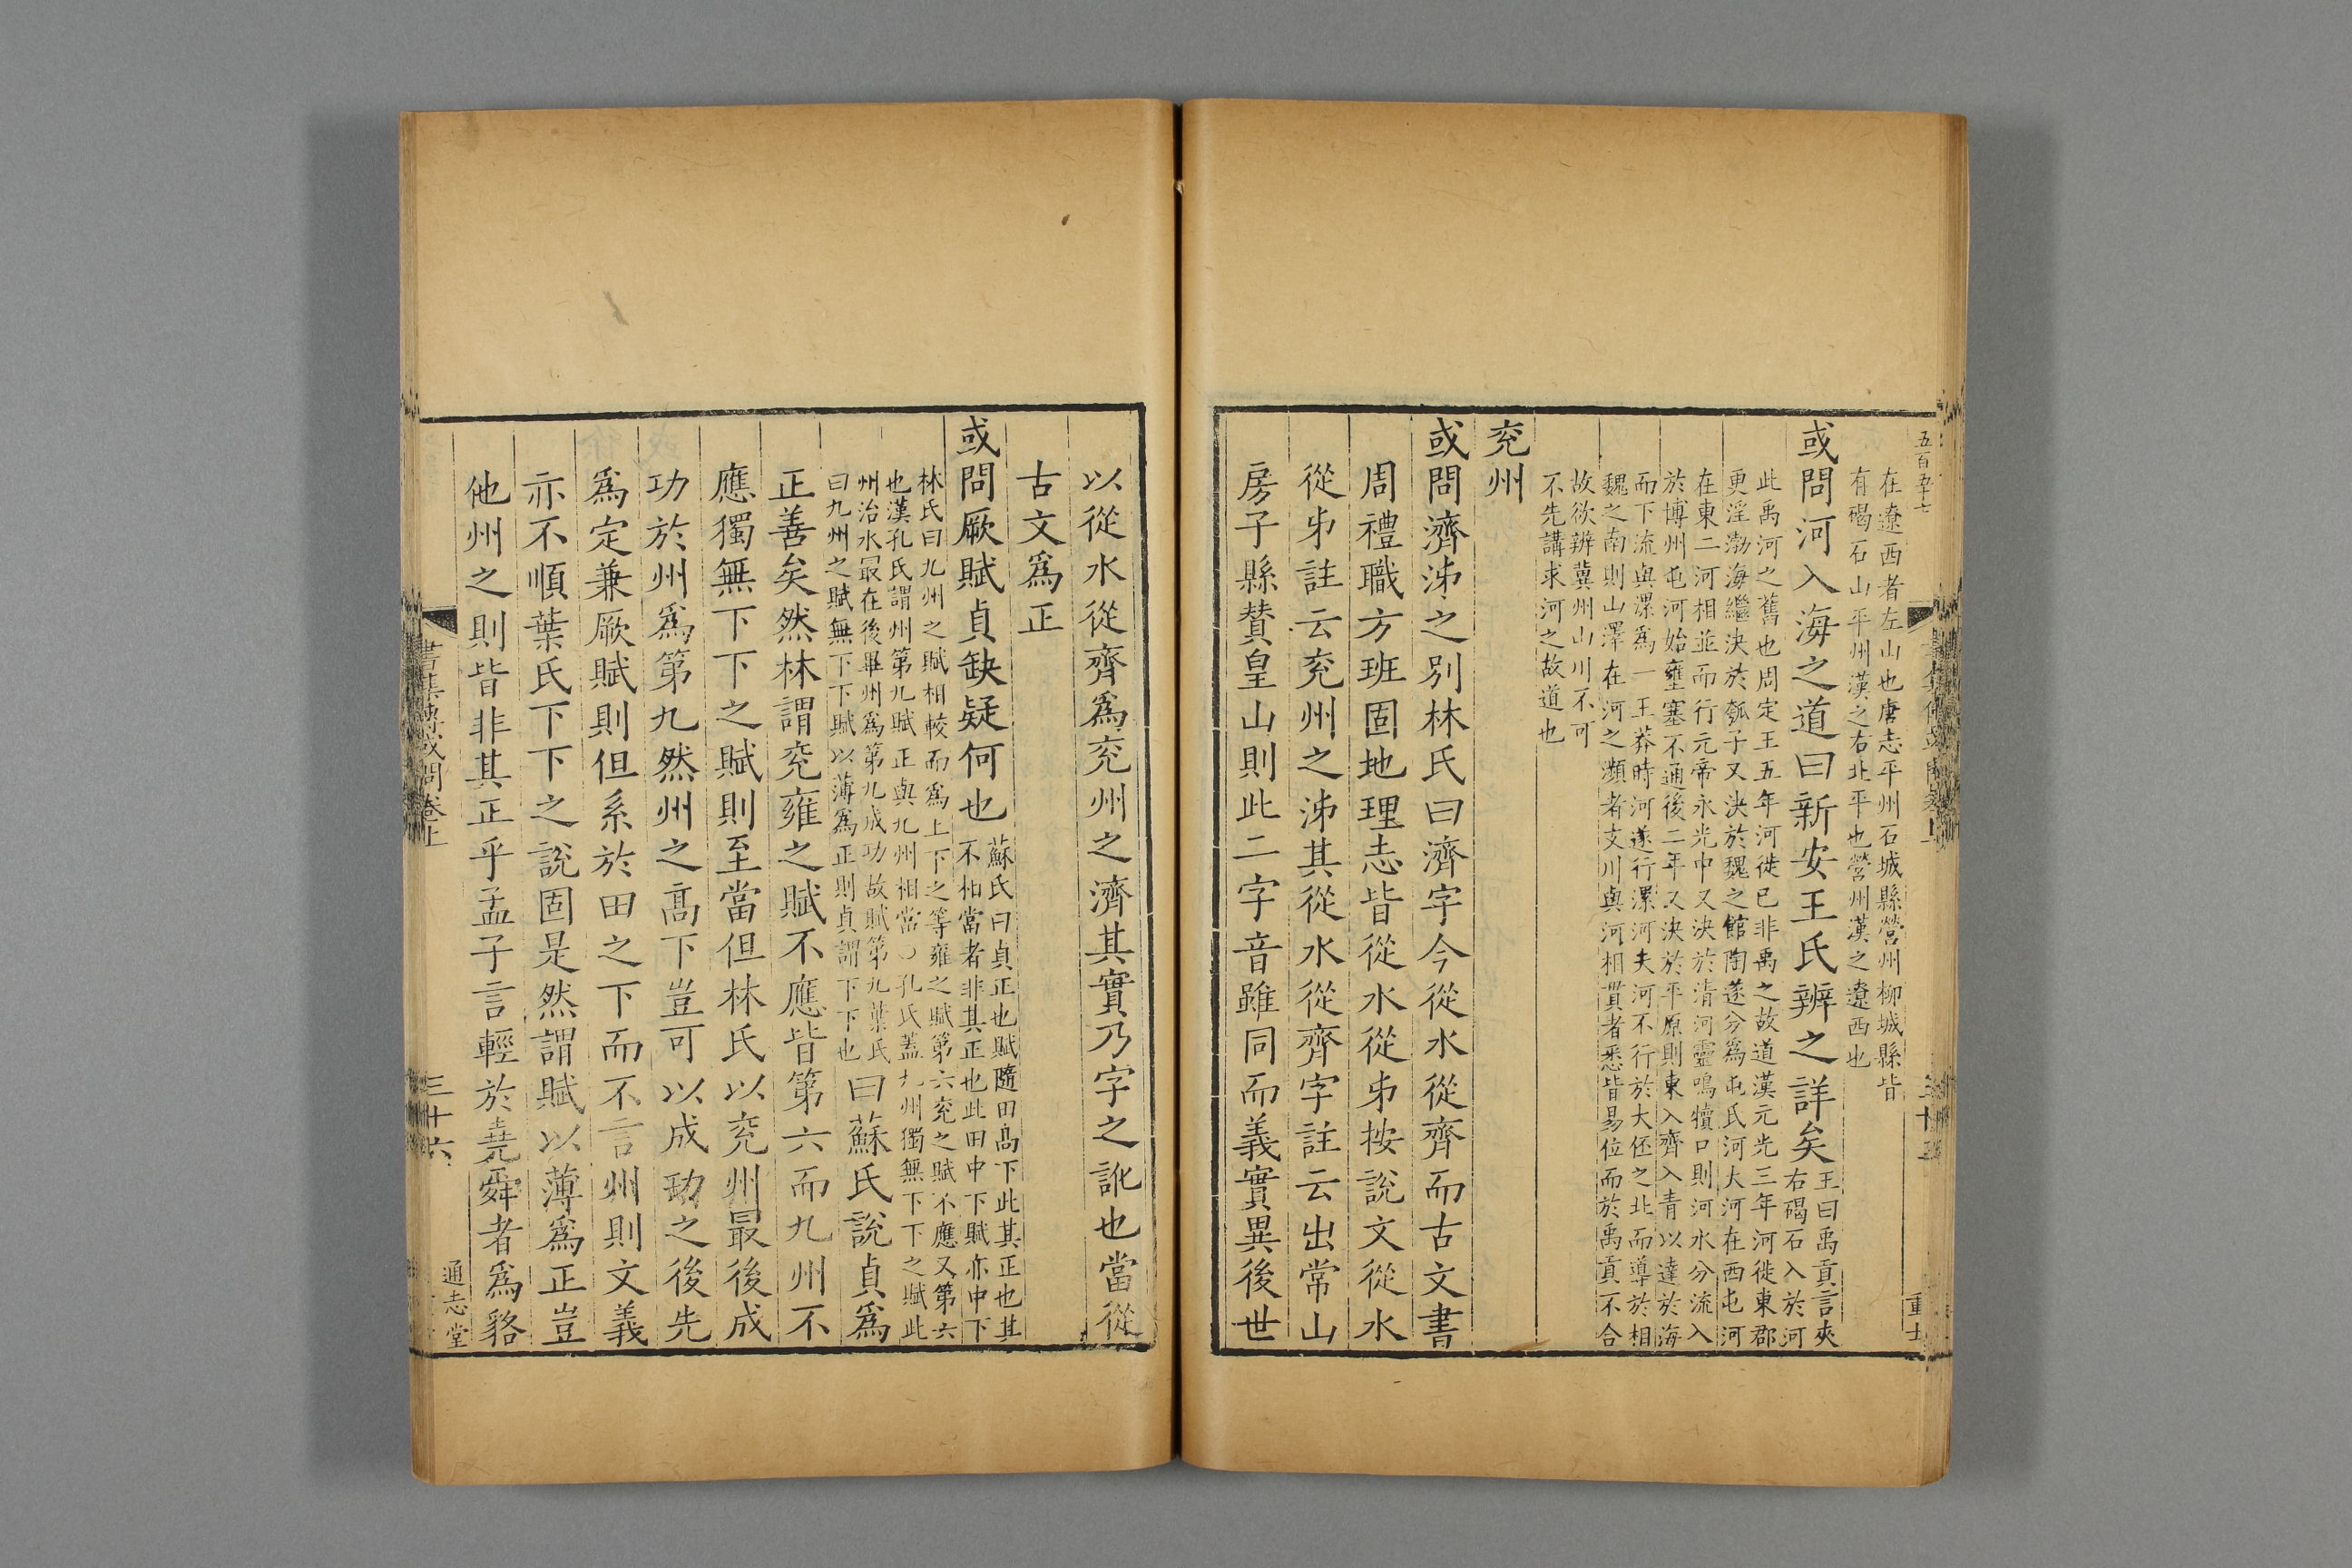 五百五十七
在遼西者左山也唐志平州石城縣營州柳城縣皆
有碣石山平州漢之右北平也營州漢之遼西也
或問河入海之道曰新安王氏辨之詳矣
王曰禹貢言夾
右碣石入於河
此禹河之舊也周定王五年河徙已非禹之故道漢元光三年河徙東郡
更淫渤海繼決於瓠子又決於魏之館陶遂分爲屯氏河大河在西屯河
在東二河相並而行元帝永光中又決於清河靈鳴犢口則河水分流入
於博州屯河始壅塞不通後二年又決於平原則東入齊入青以達於海
而下流與漯爲一王莽時河遂行漯河夫河不行於大伾之北而導於相
魏之南則山澤在河之瀕者支川與河相貫者悉皆易位而於禹貢不合
故欲辨冀州山川不可
不先講求河之故道也
兖州
或問濟泲之別林氏曰濟字今從水從齊而古文書
周禮職方班固地理志皆從水從𠂔按說文從水
從𠂔註云兖州之泲其從水從齊字註云出常山
房子縣贊皇山則此二字音雖同而義實異後世
以從水從齊爲兖州之濟其實乃字之訛也當從
古文爲正
或問厥賦貞缺疑何也
蘇氏曰貞正也賦隨田髙下此其正也其
不相當者非其正也此田中下賦亦中下
林氏曰九州之賦相較而爲上下之等雍之賦第六兖之賦不應又第六
也漢孔氏謂州第九賦正與九州相當○孔氏蓋九州獨無下下之賦此
州治水最在後畢州爲第九成功故賦第九葉氏
曰九州之賦無下下賦以薄爲正則貞謂下下也
曰蘇氏說貞爲
正善矣然林謂兖雍之賦不應皆第六而九州不
應獨無下下之賦則至當但林氏以兖州最後成
功於州爲第九然州之髙下豈可以成功之後先
爲定兼厥賦則但系於田之下而不言州則文義
亦不順葉氏下下之說固是然謂賦以薄爲正豈
他州之則皆非其正乎孟子言輕於堯舜者爲貉
書集傳或問卷上
三十六
通志堂